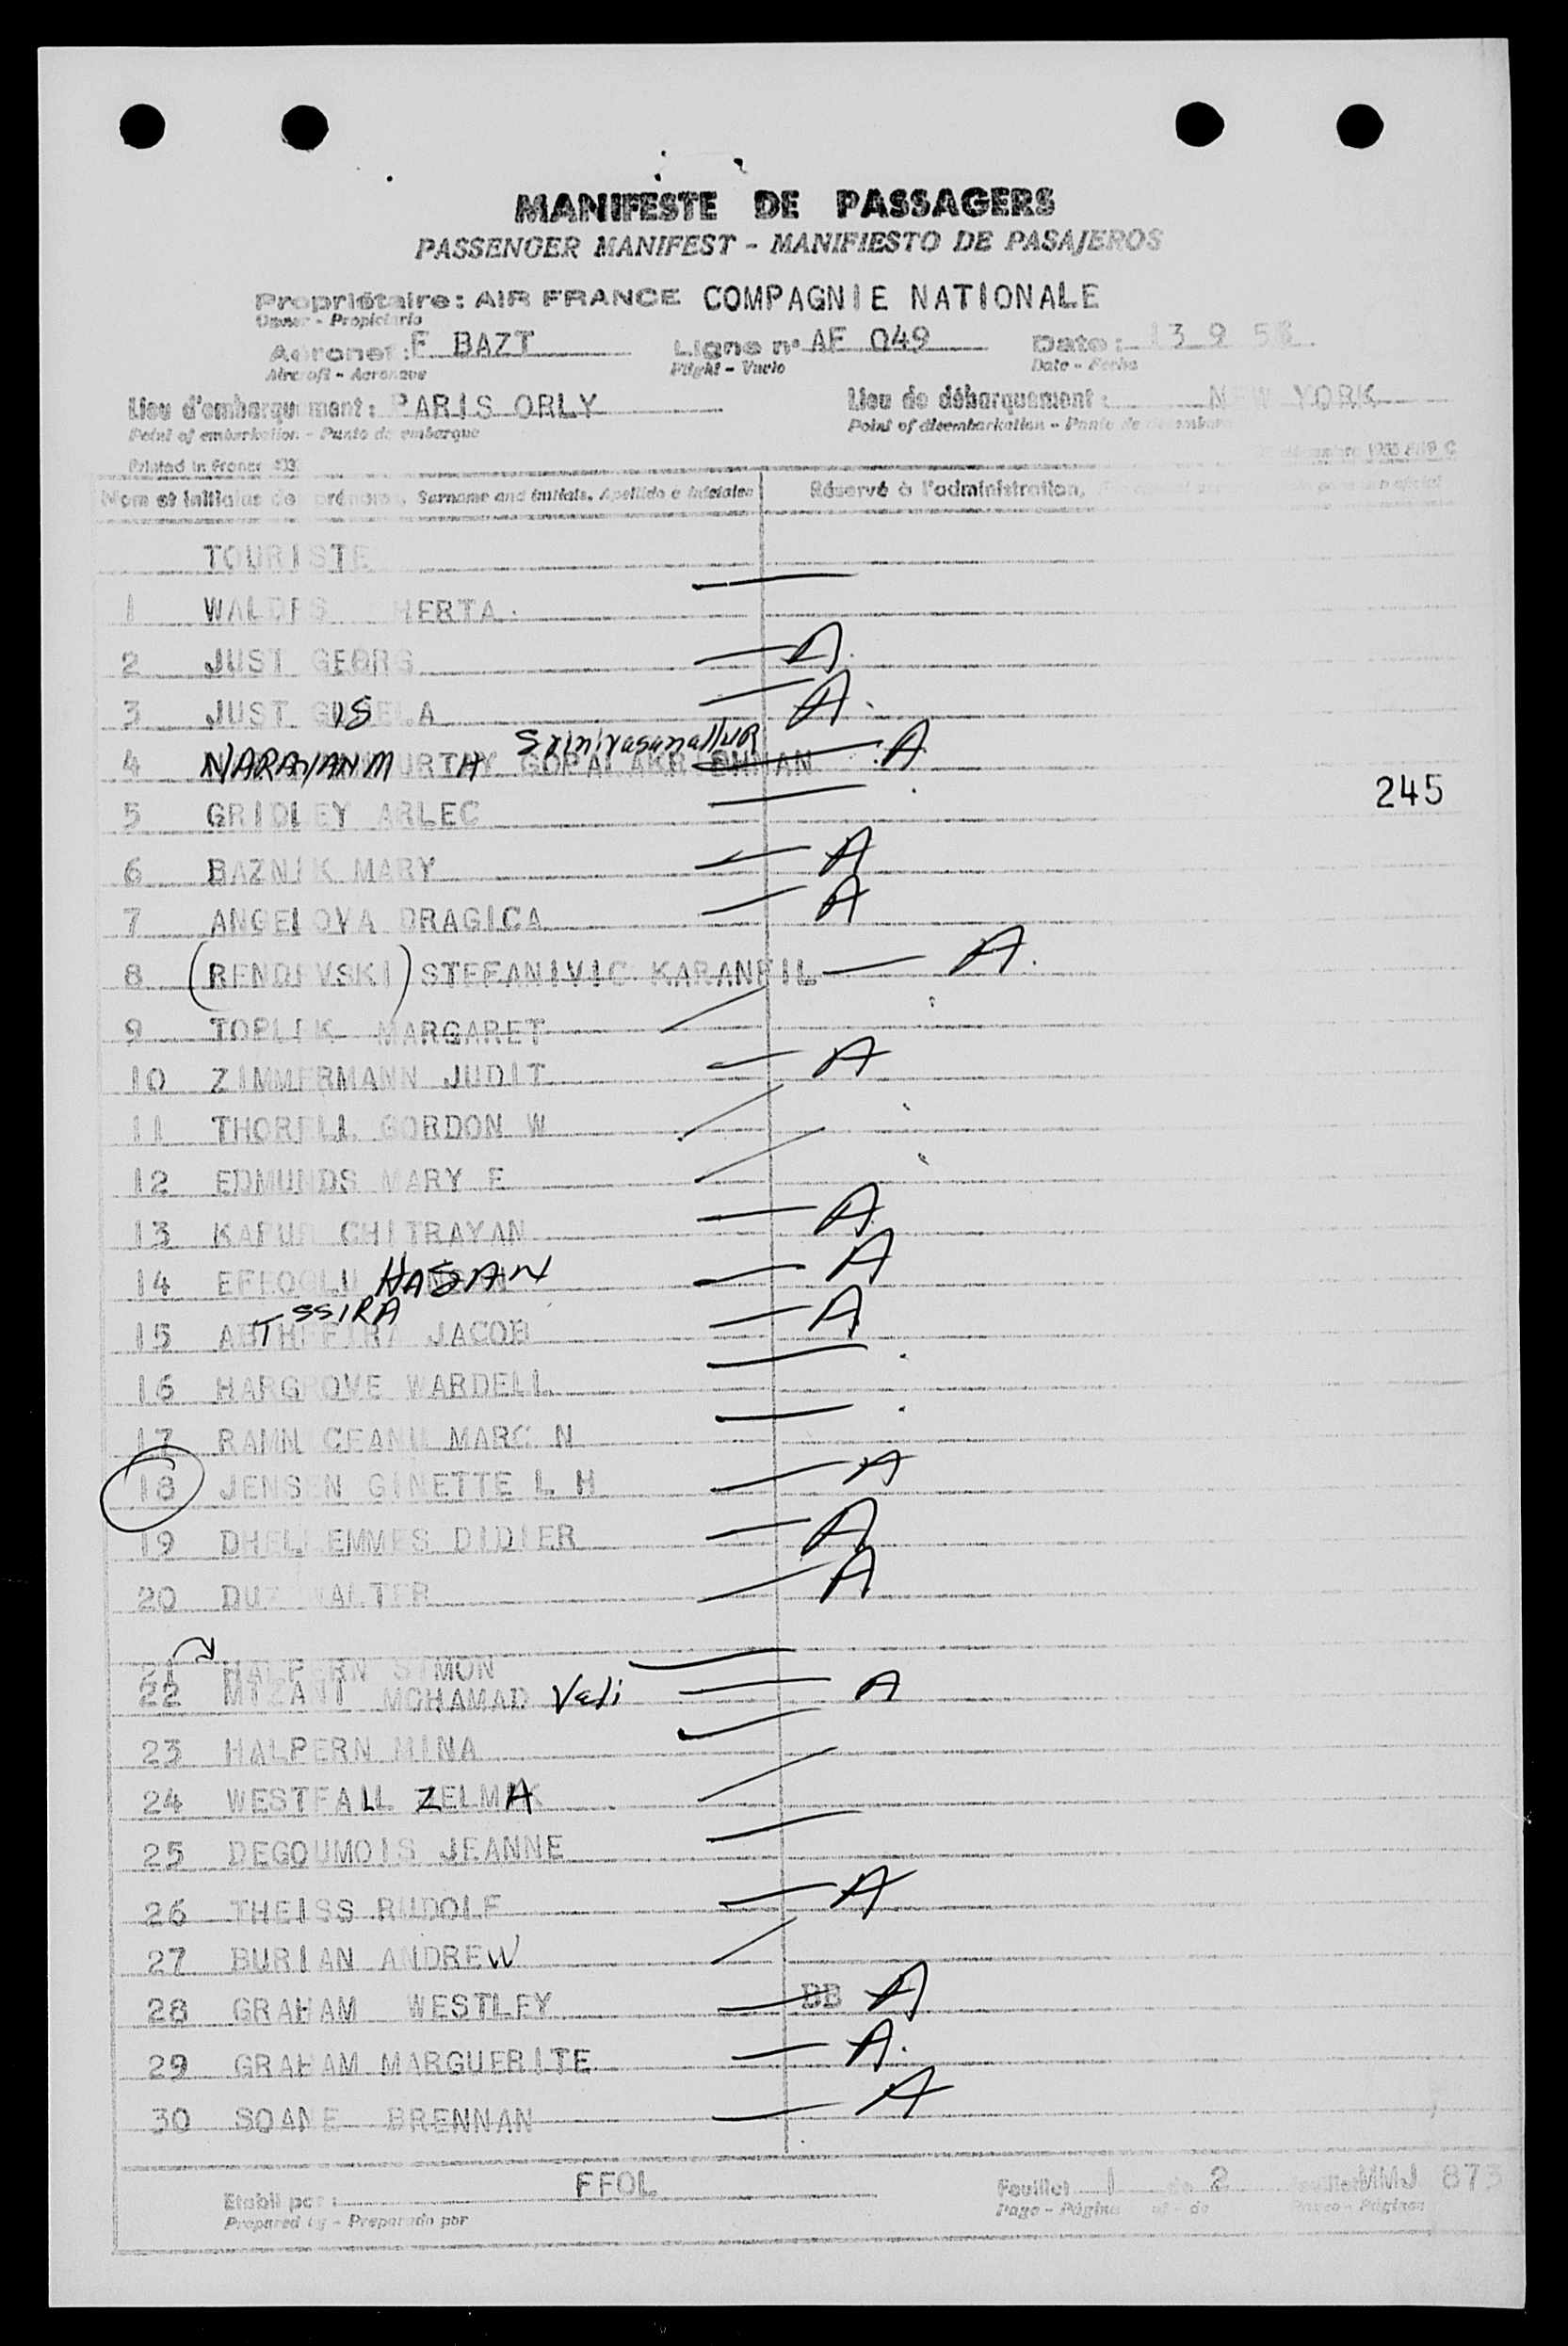 MANIFESTE DE PASSAGERS
PASSENGER MANIFEST - MANIFIESTO DE PASAJEROS
Propriétaire: AIR FRANCE COMPAGNIE NATIONALE
Owner - Propietario
Aéronef: F BAZT Ligne n° AF 049 Date: 13 9 58
Aircraft - Aeronave Flight - Vuelo Date - Fecha
Lieu d'embarquement: PARIS ORLY Lieu de débarquement: NEW YORK
Point of embarkation - Punto de embarque Point of disembarkation - Punto de
Printed in France
Nom et initiales de prénoms, Surname and initials, Apellido e iniciales Réservé à l'administration,
TOURISTE
1 HERTA
2 JUST GEORG A
3 JUST GISELA A
Srinivasanallur
4 NARAYANMURTHY GOPALAKRISHNAN A
245
5 GRIDLEY ARLEC
6 BAZNIK MARY A
7 ANGELOVA DRAGICA A
8 (RENDEVSKI) STEFANIVIC KARANFIL A
9 TOPLIK MARGARET
10 ZIMMERMANN JUDIT A
11 THORELL GORDON W
12 EDMUNDS MARY E
13 KAPUR CHITRAYAN A
14 HASAN A
SSIRA
15 JACOB A
16 HARGROVE WARDELL
17 MARC N
18 JENSEN GINETTE L H A
19 DHELLEMMES DIDIER A
20 WALTER A
21 HALPERN SIMON
22 MIZANI MOHAMAD Veli A
23 HALPERN MINA
24 WESTFALL ZELMA
25 DEGOUMOIS JEANNE
26 THEISS RUDOLF A
27 BURIAN ANDREW
28 GRAHAM WESTLEY BB A
29 GRAHAM MARGUERITE A
30 SOANE BRENNAN A
Etabli par: FFOL Feuillet 1 de 2 MMJ 873
Prepared by - Preparado por Page - Página of - de Pages - Páginas